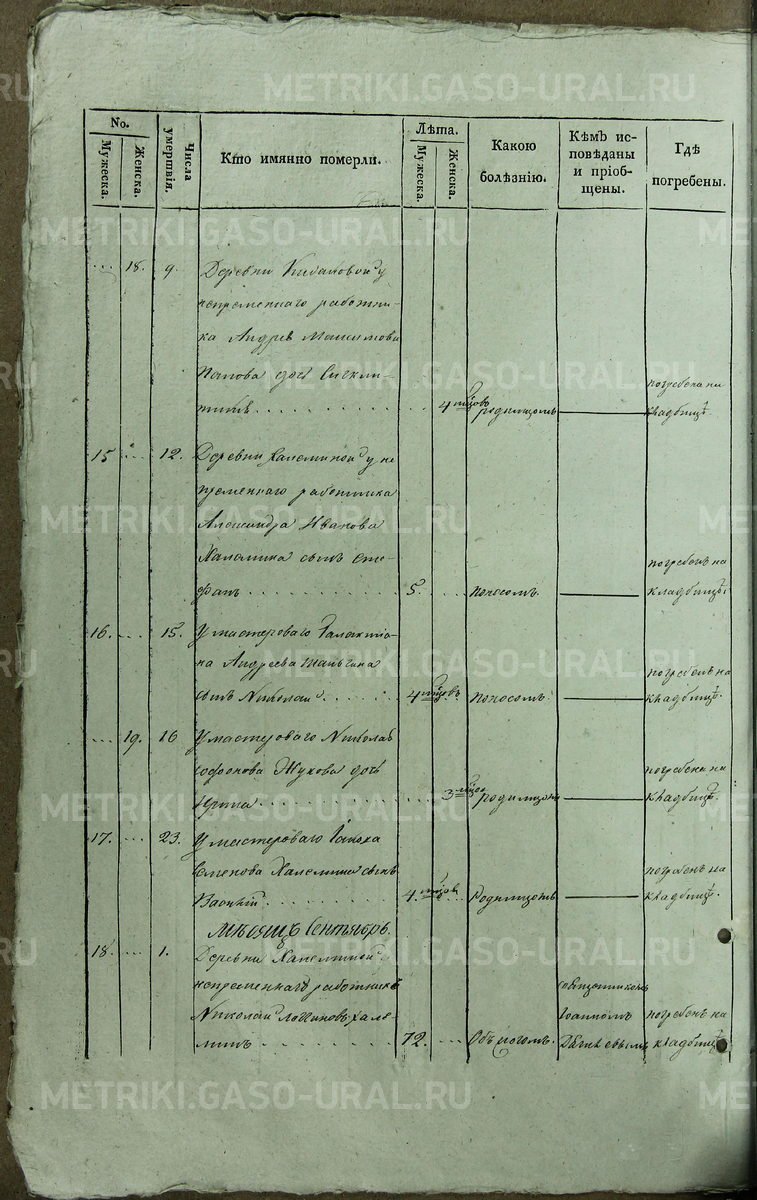 METRIKI.GASO-URAL.RU
No.
Мужеска.
Женска.
Числа умертвія.
Кто имянно померли.
Лѣта.
Мужеска.
Женска.
Какою
болѣзнію.
Кѣмъ ис-
повѣданы
и пріоб-
щены.
Гдѣ
погребены.
18. 9. Деревни у
непременнаго работни-
ка Андрея Максимова
Попова дочь Сигкли-
тикія 4 мцовъ родимцомъ погребена на
кладбищѣ.
15 12. Деревни Халеминой у не
пременнаго работника
Александра Иванова
Халемина сынъ Сте-
фанъ 5. поносомъ. погребенъ на
кладбищѣ.
16. 15. У мастероваго Галактіо-
на Андреева
сынъ Николай 4 мцовъ поносомъ погребенъ на
кладбищѣ.
19. 16 У мастероваго Николая
Софронова Жукова дочь
Ирина 3 мцовъ родимцомъ погребена на
кладбищѣ.
17. 23. У мастероваго
Семенова Халемина сынъ
4. мцовъ Родимцомъ погребенъ на
кладбищѣ.
Мѣсяцъ Сентябрь.
18. 1. Деревни Халеминой
непременнаго работника
Николай Логиновъ Хале-
минъ 72. священникомъ
Іоанномъ погребенъ на
кладбищѣ